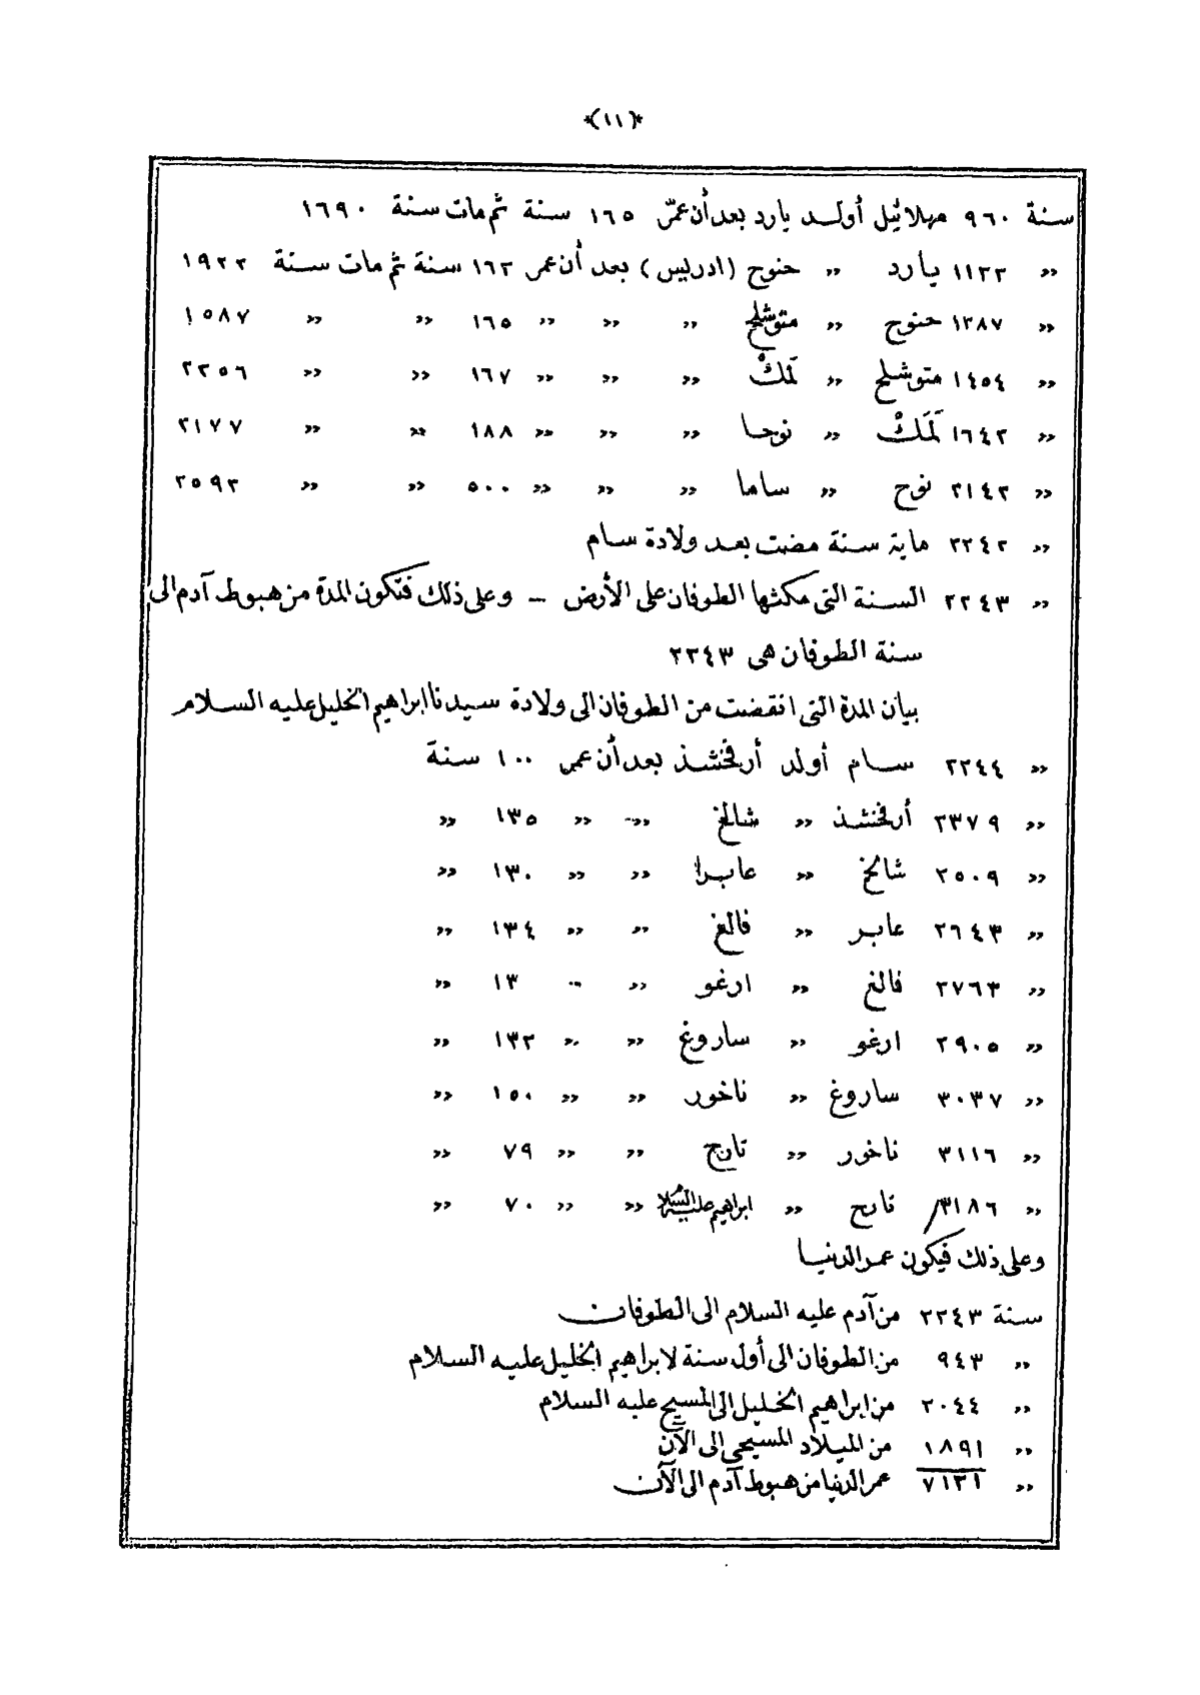 ﴿١١﴾
سنة ٩٦٠ مهلائيل أولد يارد بعد أن عمّر ١٦٥ سنة ثم مات سنة ١٦٩٠
〃 ١١٢٢ يارد 〃 حنوح (ادريس) بعد أن عمر ١٦٢ سنة ثم مات سنة ١٩٢٢
〃 ١٢٨٧ حنوح 〃 متوشلح 〃 〃 〃 ١٦٥ 〃 〃 ١٥٨٧
〃 ١٤٥٤ متوشلح 〃 لمكْ 〃 〃 〃 ١٦٧ 〃 〃 ٢٢٥٦
〃 ١٦٤٢ لَمَكْ 〃 نوحا 〃 〃 〃 ١٨٨ 〃 〃 ٢١٧٧
〃 ٢١٤٢ نوح 〃 ساما 〃 〃 〃 ٥٠٠ 〃 〃 ٢٥٩٢
〃 ٢٢٤٢ ماية سنة مضت بعد ولادة سام
〃 ٢٢٤٣ السنة التى مكثها الطوفان على الأرض – وعلى ذلك فتكون المدة من هبوط آدم الى
سنة الطوفان هى ٢٢٤٣
بيان المدة التى انقضت من الطوفان الى ولادة سيدنا ابراهيم الخليل عليه السلام
〃 ٢٢٤٤ سام أولد أرفخشذ بعد أن عمر ١٠٠ سنة
〃 ٢٣٧٩ أرفخشذ 〃 شالخ 〃 〃 ١٣٥ 〃
〃 ٢٥٠٩ شالخ 〃 عابرا 〃 〃 ١٣٠ 〃
〃 ٢٦٤٣ عابر 〃 فالغ 〃 〃 ١٣٤ 〃
〃 ٢٧٦٣ فالغ 〃 ارغو 〃 〃 ١٣ 〃
〃 ٢٩٠٥ ارغو 〃 ساروغ 〃 〃 ١٣٢ 〃
〃 ٣٠٣٧ ساروغ 〃 ناخور 〃 〃 ١٥٠ 〃
〃 ٣١١٦ ناخور 〃 تارح 〃 〃 ٧٩ 〃
〃 ٣١٨٦ تارح 〃 ابراهيم عليه السلام 〃 〃 ٧٠ 〃
وعلى ذلك فيكون عمر الدنيا
سنة ٢٢٤٣ من آدم عليه السلام الى الطوفان
〃 ٩٤٣ من الطوفان الى أول سنة لابراهيم الخليل عليه السلام
〃 ٢٠٤٤ من ابراهيم الخليل الى المسيح عليه السلام
〃 ١٨٩١ من الميلاد المسيحى الى الآن
〃 ٧١٢١ عمر الدنيا من هبوط آدم الى الآن